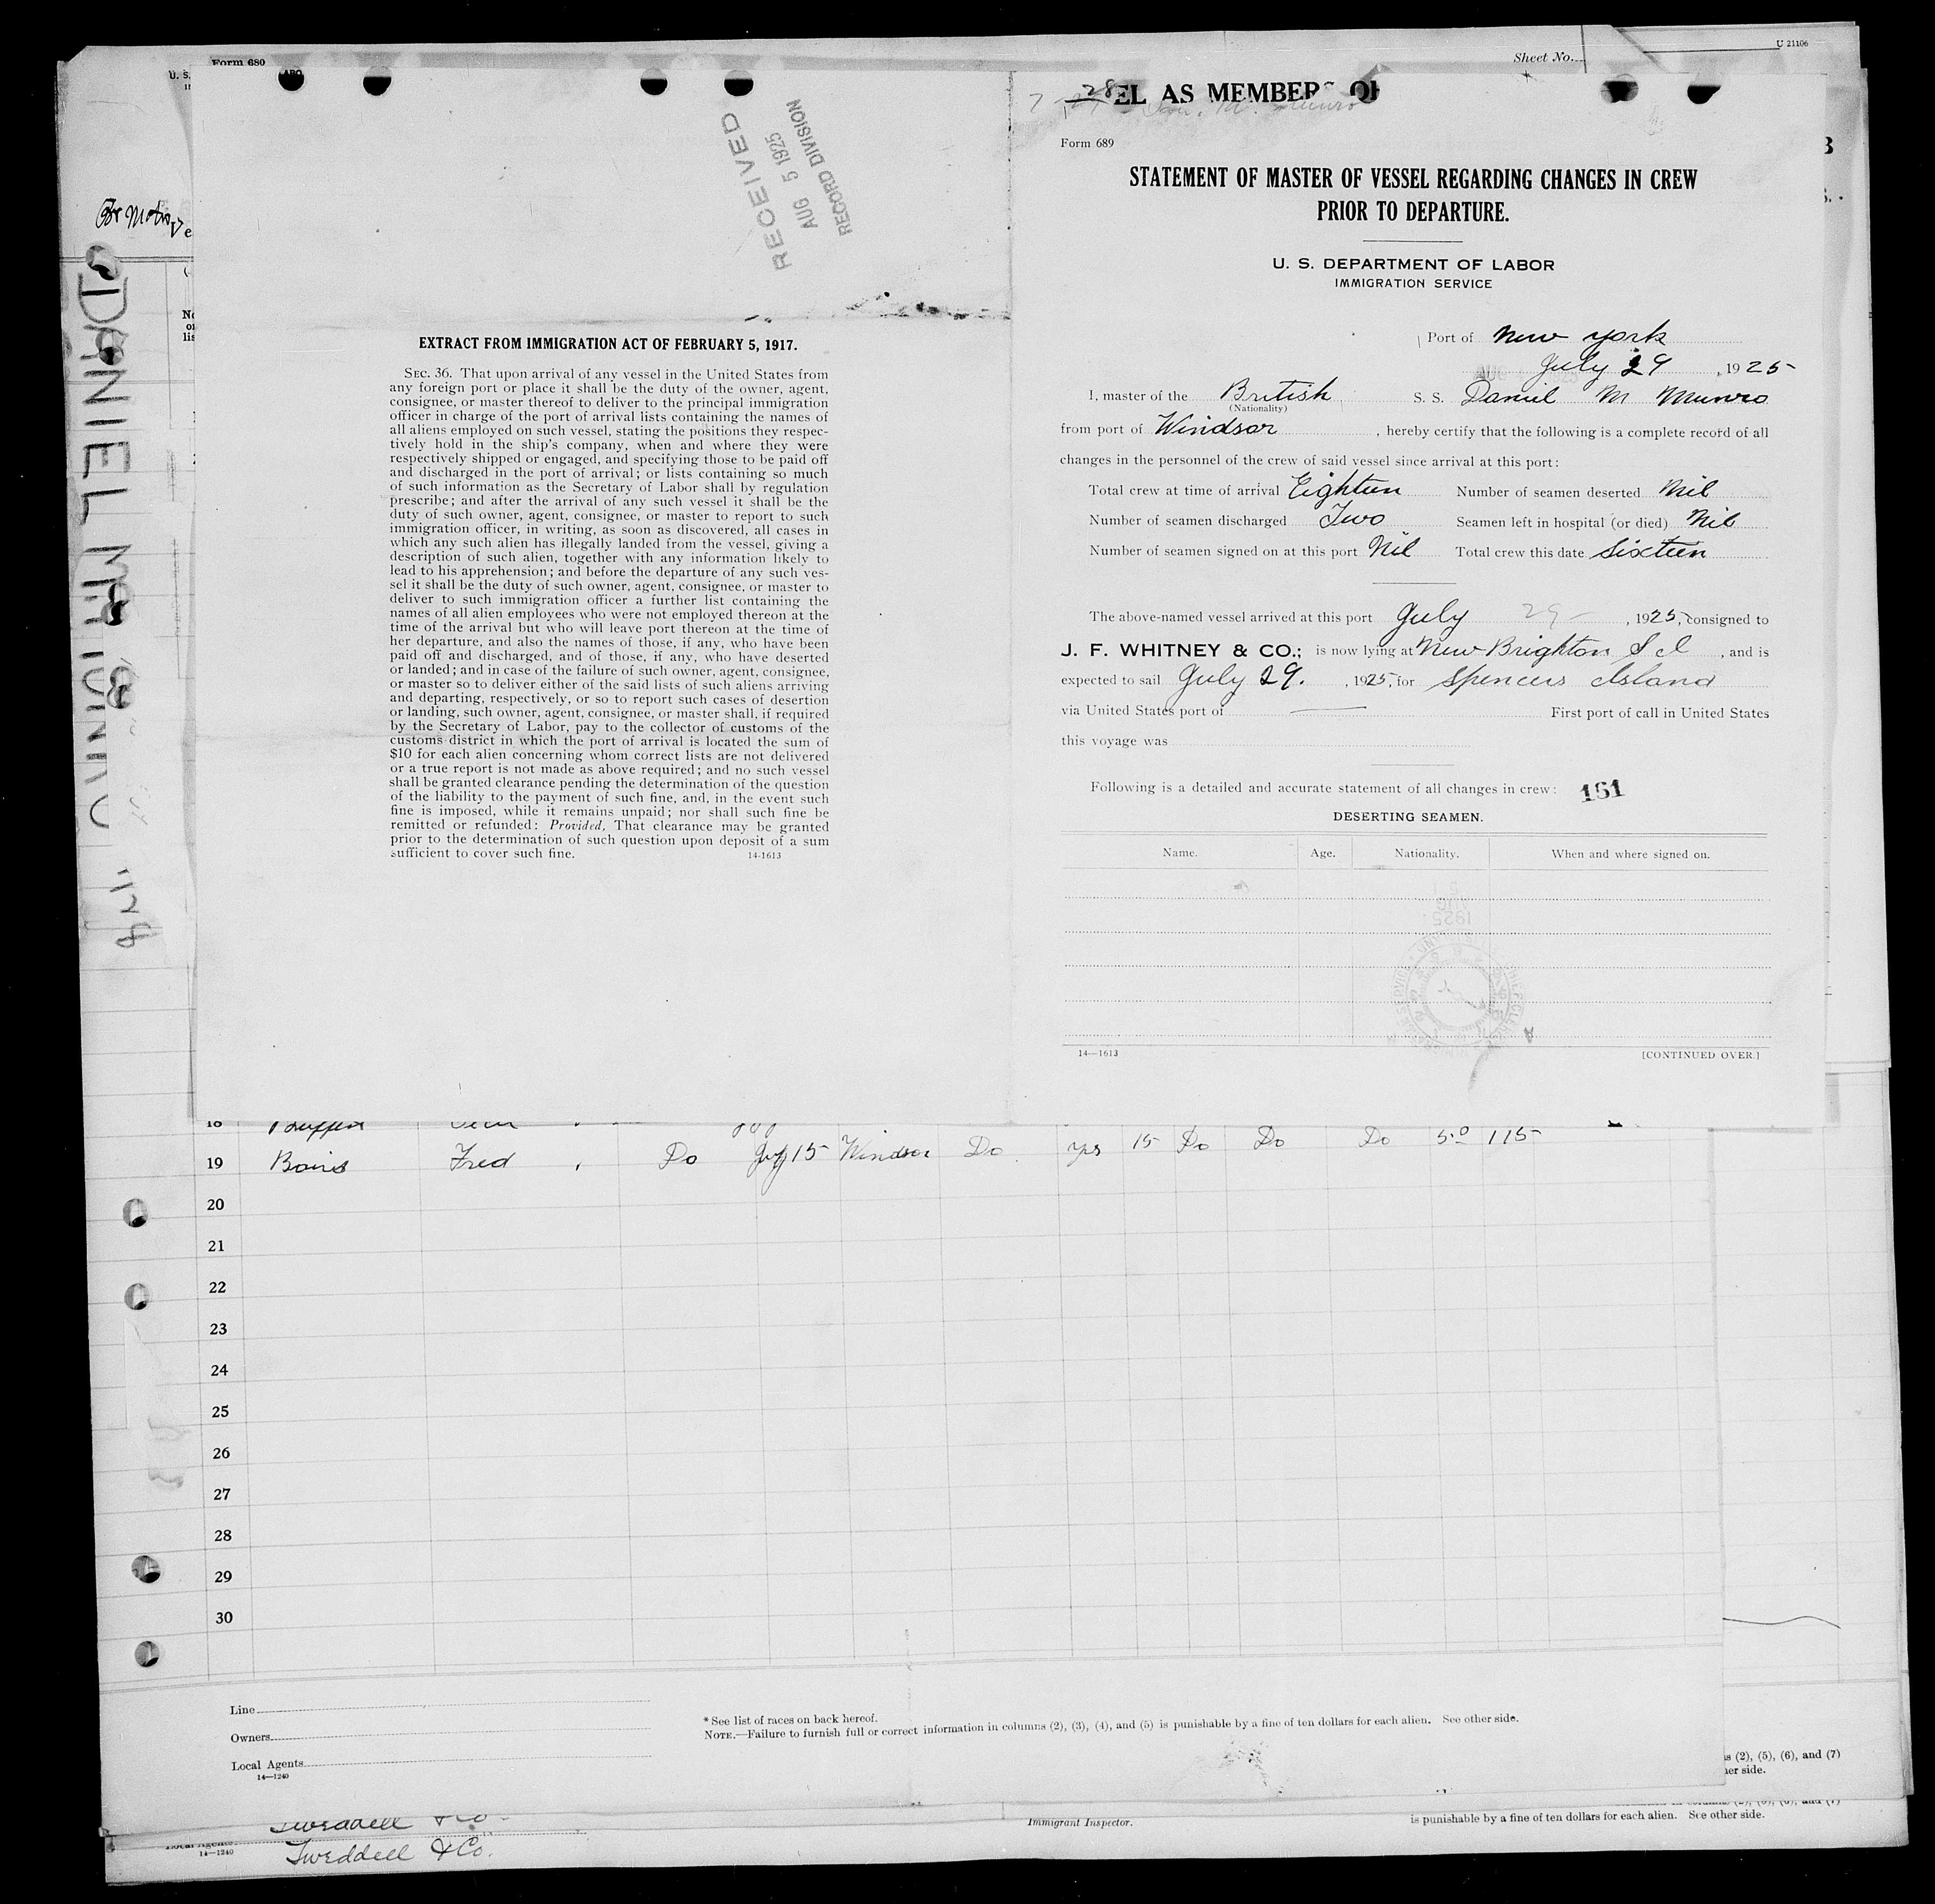 Form 680
U. S.
Sheet No.
U 21106
For Motor Ve
DANIEL M. MUNRO
RECEIVED
AUG 5 1925
RECORD DIVISION
EXTRACT FROM IMMIGRATION ACT OF FEBRUARY 5, 1917.
SEC. 36. That upon arrival of any vessel in the United States from
any foreign port or place it shall be the duty of the owner, agent,
consignee, or master thereof to deliver to the principal immigration
officer in charge of the port of arrival lists containing the names of
all aliens employed on such vessel, stating the positions they respec-
tively hold in the ship's company, when and where they were
respectively shipped or engaged, and specifying those to be paid off
and discharged in the port of arrival; or lists containing so much
of such information as the Secretary of Labor shall by regulation
prescribe; and after the arrival of any such vessel it shall be the
duty of such owner, agent, consignee, or master to report to such
immigration officer, in writing, as soon as discovered, all cases in
which any such alien has illegally landed from the vessel, giving a
description of such alien, together with any information likely to
lead to his apprehension; and before the departure of any such ves-
sel it shall be the duty of such owner, agent, consignee, or master to
deliver to such immigration officer a further list containing the
names of all alien employees who were not employed thereon at the
time of the arrival but who will leave port thereon at the time of
her departure, and also the names of those, if any, who have been
paid off and discharged, and of those, if any, who have deserted
or landed; and in case of the failure of such owner, agent, consignee,
or master so to deliver either of the said lists of such aliens arriving
and departing, respectively, or so to report such cases of desertion
or landing, such owner, agent, consignee, or master shall, if required
by the Secretary of Labor, pay to the collector of customs of the
customs district in which the port of arrival is located the sum of
$10 for each alien concerning whom correct lists are not delivered
or a true report is not made as above required; and no such vessel
shall be granted clearance pending the determination of the question
of the liability to the payment of such fine, and, in the event such
fine is imposed, while it remains unpaid; nor shall such fine be
remitted or refunded: Provided, That clearance may be granted
prior to the determination of such question upon deposit of a sum
sufficient to cover such fine. 14-1613
28 EL AS MEMBERS OF
Munro
Form 689
STATEMENT OF MASTER OF VESSEL REGARDING CHANGES IN CREW
PRIOR TO DEPARTURE.
U. S. DEPARTMENT OF LABOR
IMMIGRATION SERVICE
Port of New York
July 29, 1925
I, master of the British S. S. Daniel M Munro
(Nationality)
from port of Windsor, hereby certify that the following is a complete record of all
changes in the personnel of the crew of said vessel since arrival at this port:
Total crew at time of arrival Eighteen Number of seamen deserted Nil
Number of seamen discharged Two Seamen left in hospital (or died) Nil
Number of seamen signed on at this port Nil Total crew this date Sixteen
The above-named vessel arrived at this port July 29, 1925, consigned to
J. F. WHITNEY & CO.; is now lying at New Brighton S I, and is
expected to sail July 29., 1925, for Spencers Island
via United States port of First port of call in United States
this voyage was
Following is a detailed and accurate statement of all changes in crew: 151
DESERTING SEAMEN.
Name. Age. Nationality. When and where signed on.
AUG
1925
14—1613 [CONTINUED OVER.]
18
19 Fred Do July 15 Windsor Do Yes 15 Do Do Do 5.0 115
20
21
22
23
24
25
26
27
28
29
30
Line
Owners
Local Agents
14—1240
* See list of races on back hereof.
NOTE.—Failure to furnish full or correct information in columns (2), (3), (4), and (5) is punishable by a fine of ten dollars for each alien. See other side.
s (2), (5), (6), and (7)
her side.
Tweddell & Co.
14—1240
Tweddell & Co.
Immigrant Inspector.
is punishable by a fine of ten dollars for each alien. See other side.